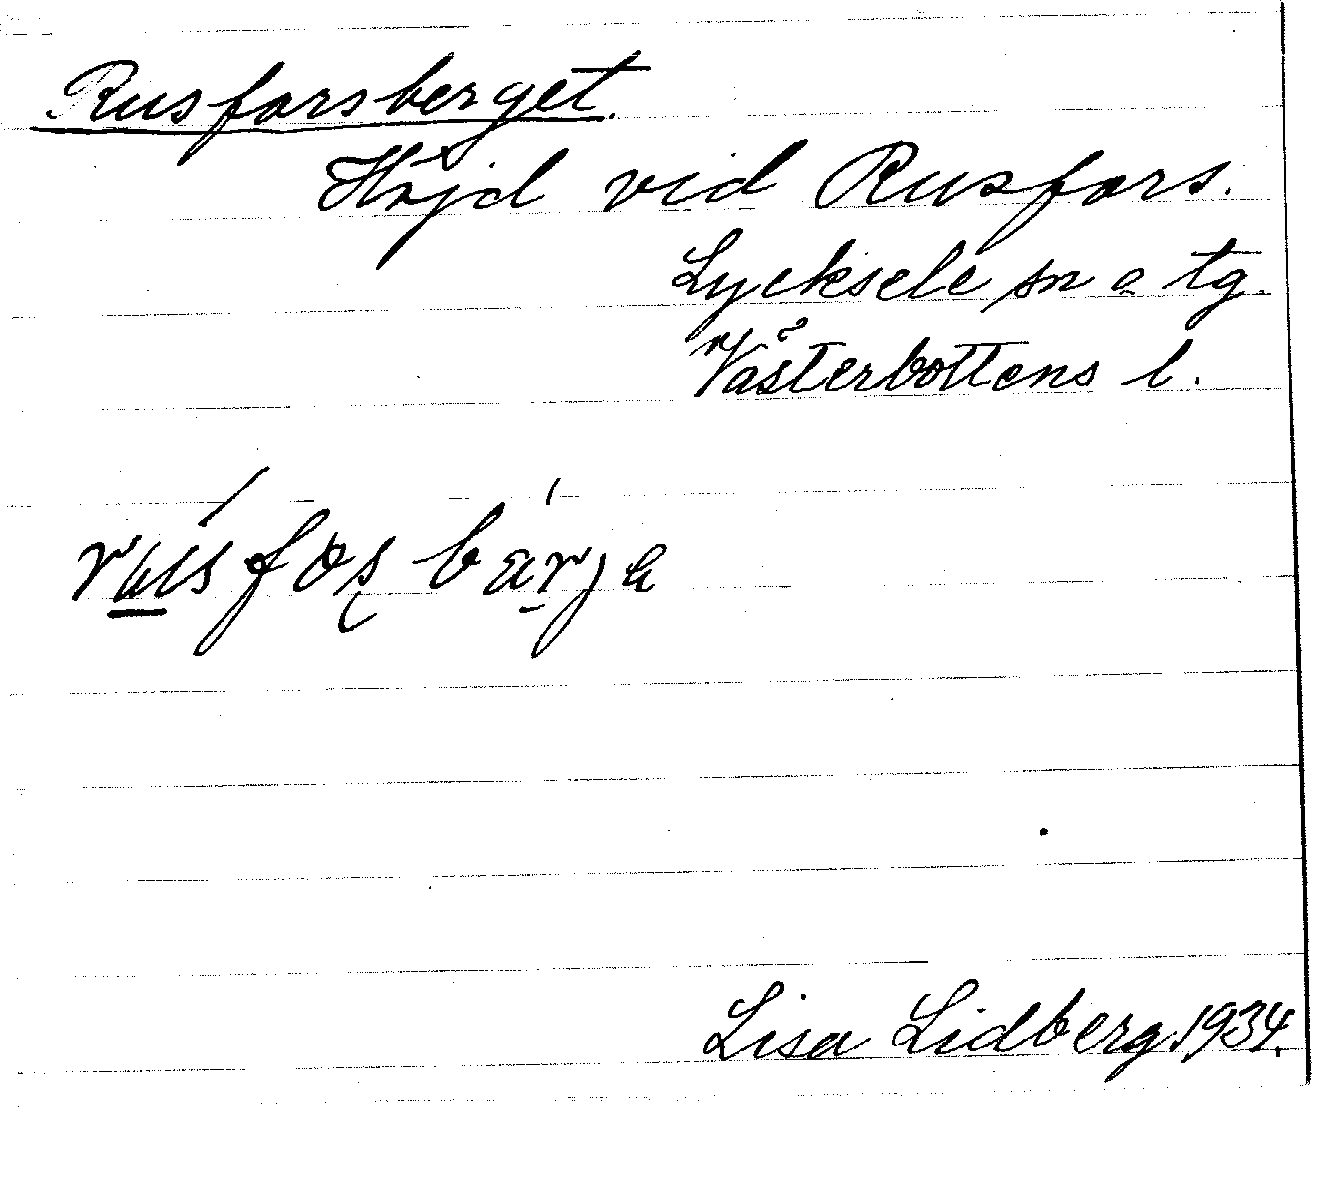 Rusforsberget.
Höjd vid Rusfors.
Lycksele sn o tg.
Västerbottens l.
Lisa Lidberg. 1934.